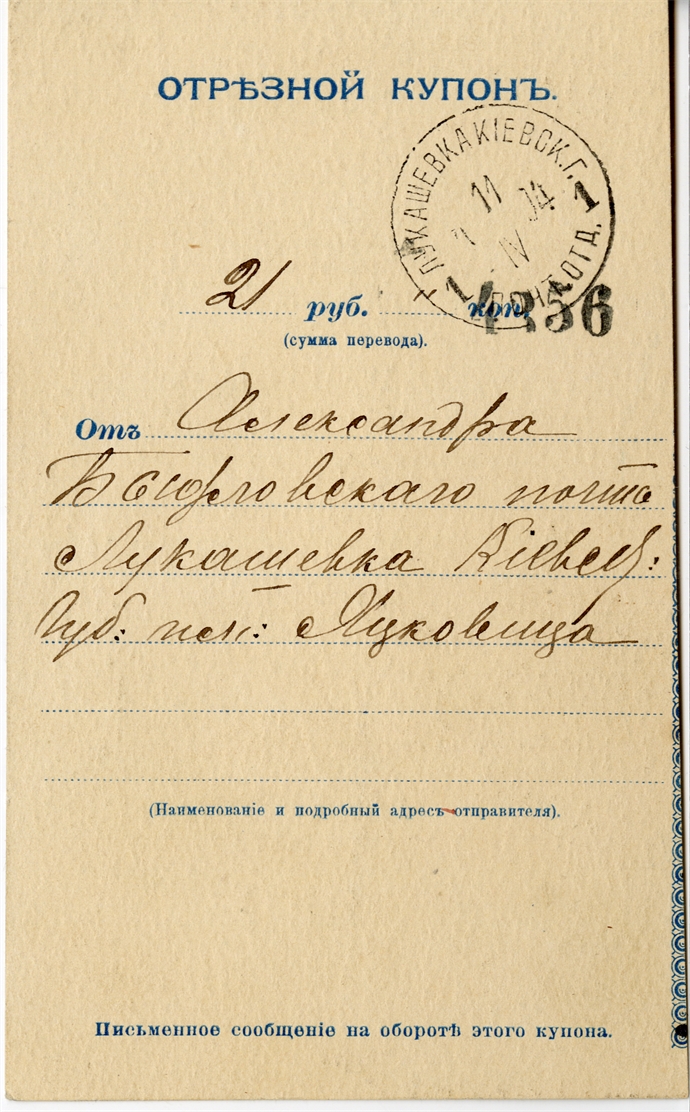 ОТРѢЗНОЙ КУПОНЪ.
ЛУКАШЕВКА КІЕВСК. Г.
11
IV
04
1 1
ПОЧТ. ОТД.
21 руб. — коп.
436
(сумма перевода).
Отъ Александра
почт
Лукашевка Кіевск:
Губ:
(Наименованіе и подробный адресъ отправителя).
Письменное сообщеніе на оборотѣ этого купона.